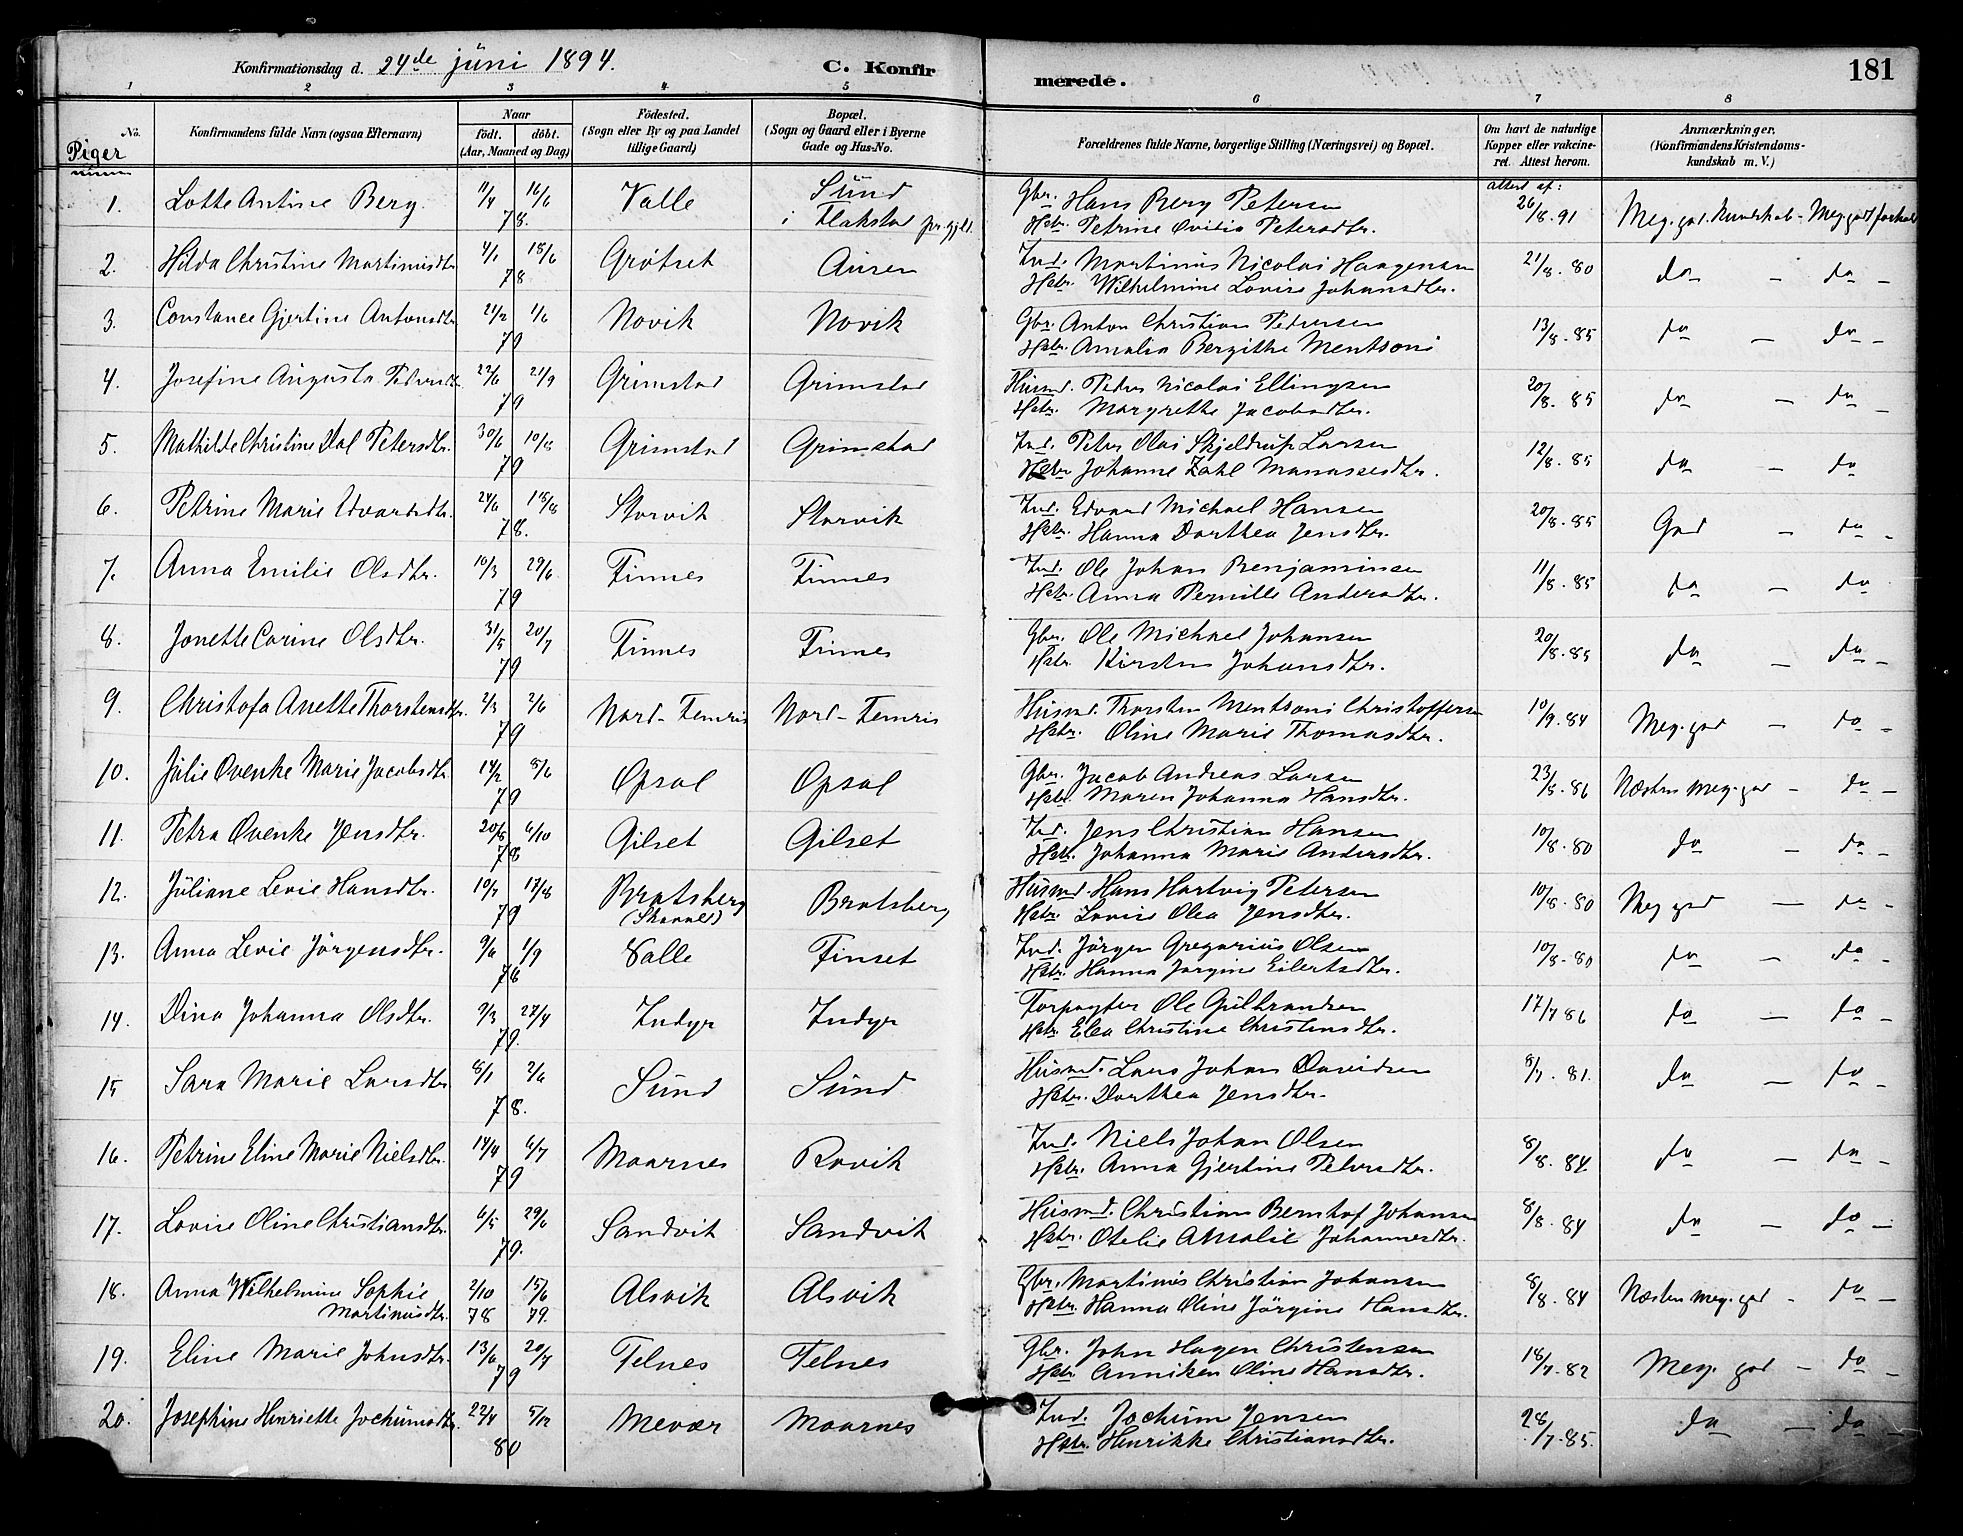 Konfirmationsdag d. 24de juni 1894. C. Konfirmerede. 181
1 2 3 4 5 6 7 8
No. Konfirmandens fulde Navn (ogsaa Efternavn) Naar født. døbt. (Aar, Maaned og Dag) Fødested. (Sogn eller By og paa Landet tillige Gaard) Bopæl. (Sogn og Gaard eller i Byerne Gade og Hus-No. Forældrenes fulde Navne, borgerlige Stilling (Næringsvei) og Bopæl. Om havt de naturlige Kopper eller vaccineret. Attest herom. Anmærkninger. (Konfirmandens Kristendomskundskab m. V.)
Piger
1. Lotte Antine Berg. 11/4 16/6 78. Valle Sund i Flakstad Gbr. Hans Berg Petersen attest af: 26/8.91 Meg. god. Kundskab - Meg. godt forhold
Hstr. Petrine Ovidia Petersdtr.
2. Hilda Christine Martinusdtr 4/1 18/6 78. Grötset Auren Ind. Martinus Nicolai Haagensen 21/8.80 do - do -
Hstr. Wilhelmine Lovise Johansdtr.
3. Constance Gjertine Antonsdtr. 24/2 1/6 79 Novik Novik Gbr. Anton Christian Petersen 13/8.85 do - do -
Hstr. Amalia Bergithe Mentsoni
4. Josefine Augusta Pedersdtr. 22/6 21/9 79 Grimstad Grimstad Husmd. Peder Nicolai Ellingsen 20/8.85 do - do -
Hstr. Margrethe Jacobsdtr.
5. Mathilde Christine Dal Petersdtr. 30/6 10/8 79 Grimstad Grimstad Ind. Peter Olai Skjeldrup Larsen 12/8.85 do - do
Hstr. Johanne Zahl Manassesdtr.
6. Petrine Marie Edvardsdtr. 24/6 18/8 78. Storvik Storvik Ind. Edvard Michael Hansen 20/8.85 God - do -
Hstr. Hanna Dorthea Jensdtr.
7. Anna Emilie Olsdtr. 10/3 29/6 79 Finnes Finnes Ind. Ole Johan Benjaminsen 11/8.85 do - do
Hstr. Anna Pernille Andersdtr.
8. Jonette Carine Olsdtr. 31/5 20/7 79 Finnes Finnes Gbr. Ole Michael Johansen 20/8.85 do - do -
Hstr. Kirsten Johansdtr.
9. Christofa Anette Thorstensdtr. 2/3 2/6 79 Nord-Femris Nord-Femris Husmd. Thorsten Mentsoni Christoffersen 10/9.84 Meg. god - do -
Hstr. Oline Marie Thomasdtr.
10. Julie Ovenke Marie Jacobsdtr. 14/2 8/6 79 Opsal Opsal Gbr. Jacob Andreas Larsen 23/8.86 Næsten meg. god - do -
Hstr. Maren Johanna Hansdtr.
11. Petra Ovenke Jensdtr. 20/8 6/10 78 Gilset Gilset Ind. Jens Christian Hansen 10/8.80 do - do -
Hstr. Johanna Marie Andersdtr.
12. Juliane Levie Hansdtr. 10/7 17/8 79 Bratsberg Bratsberg Husmd. Hans Hartvig Petersen 10/8.80 Meg god - do -
Hstr. Lovise Olea Jensdtr.
13. Anna Levie Jörgensdtr. 9/6 1/9 78 Valle Finset Ind. Jörgen Gregorius Olsen 10/8.80 do - do -
Hstr. Hanna Jorgine Eilertsdtr.
14. Dina Johanna Olsdtr. 2/3 27/4 79. Indyr Indyr Forpagter Ole Gulbrandsen 17/7 86 do - do -
Hstr. Elea Christine Christensdtr.
15 Sara Marie Larsdtr 8/1 2/6 78. Sund Sund Husmd. Lars Johan Davidsen 8/7.81. do - do -
Hstr. Dorthea Jensdtr.
16. Petrine Eline Marie Nielsdtr. 14/4 6/7 79 Maarnes Ravik Ind. Niels Johan Olsen 8/8.84. do - do -
Hstr. Anna Gjertine Pedersdtr.
17. Lovise Oline Christiansdtr. 6/5 29/6 79. Sandvik Sandvik Husmd. Christian Bernhof Johansen 8/8.84 do - do -
Hstr. Otelie Amalie Johannesdtr.
18. Anna Wilhelmine Sophie Martinusdtr. 2/10 78 15/6 79. Alsvik Alsvik Gbr. Martinus Christian Johansen 8/8.84 Næsten meg. god - do -
Hstr. Hanna Oline Jörgine Hansdtr.
19. Eline Marie Johnsdtr. 13/6 20/7 79 Telnes Telnes Gbr. John Hagen Christensen 18/7.82 Meg. god - do -
Hstr. Anniken Oline Hansdtr.
20. Josephine Henriette Jochumsdtr. 22/4 5/12 80 Mevær Maarnes Ind. Jochum Jensen 28/7.85. do - do -
Hstr. Henrikke Christiansdtr.